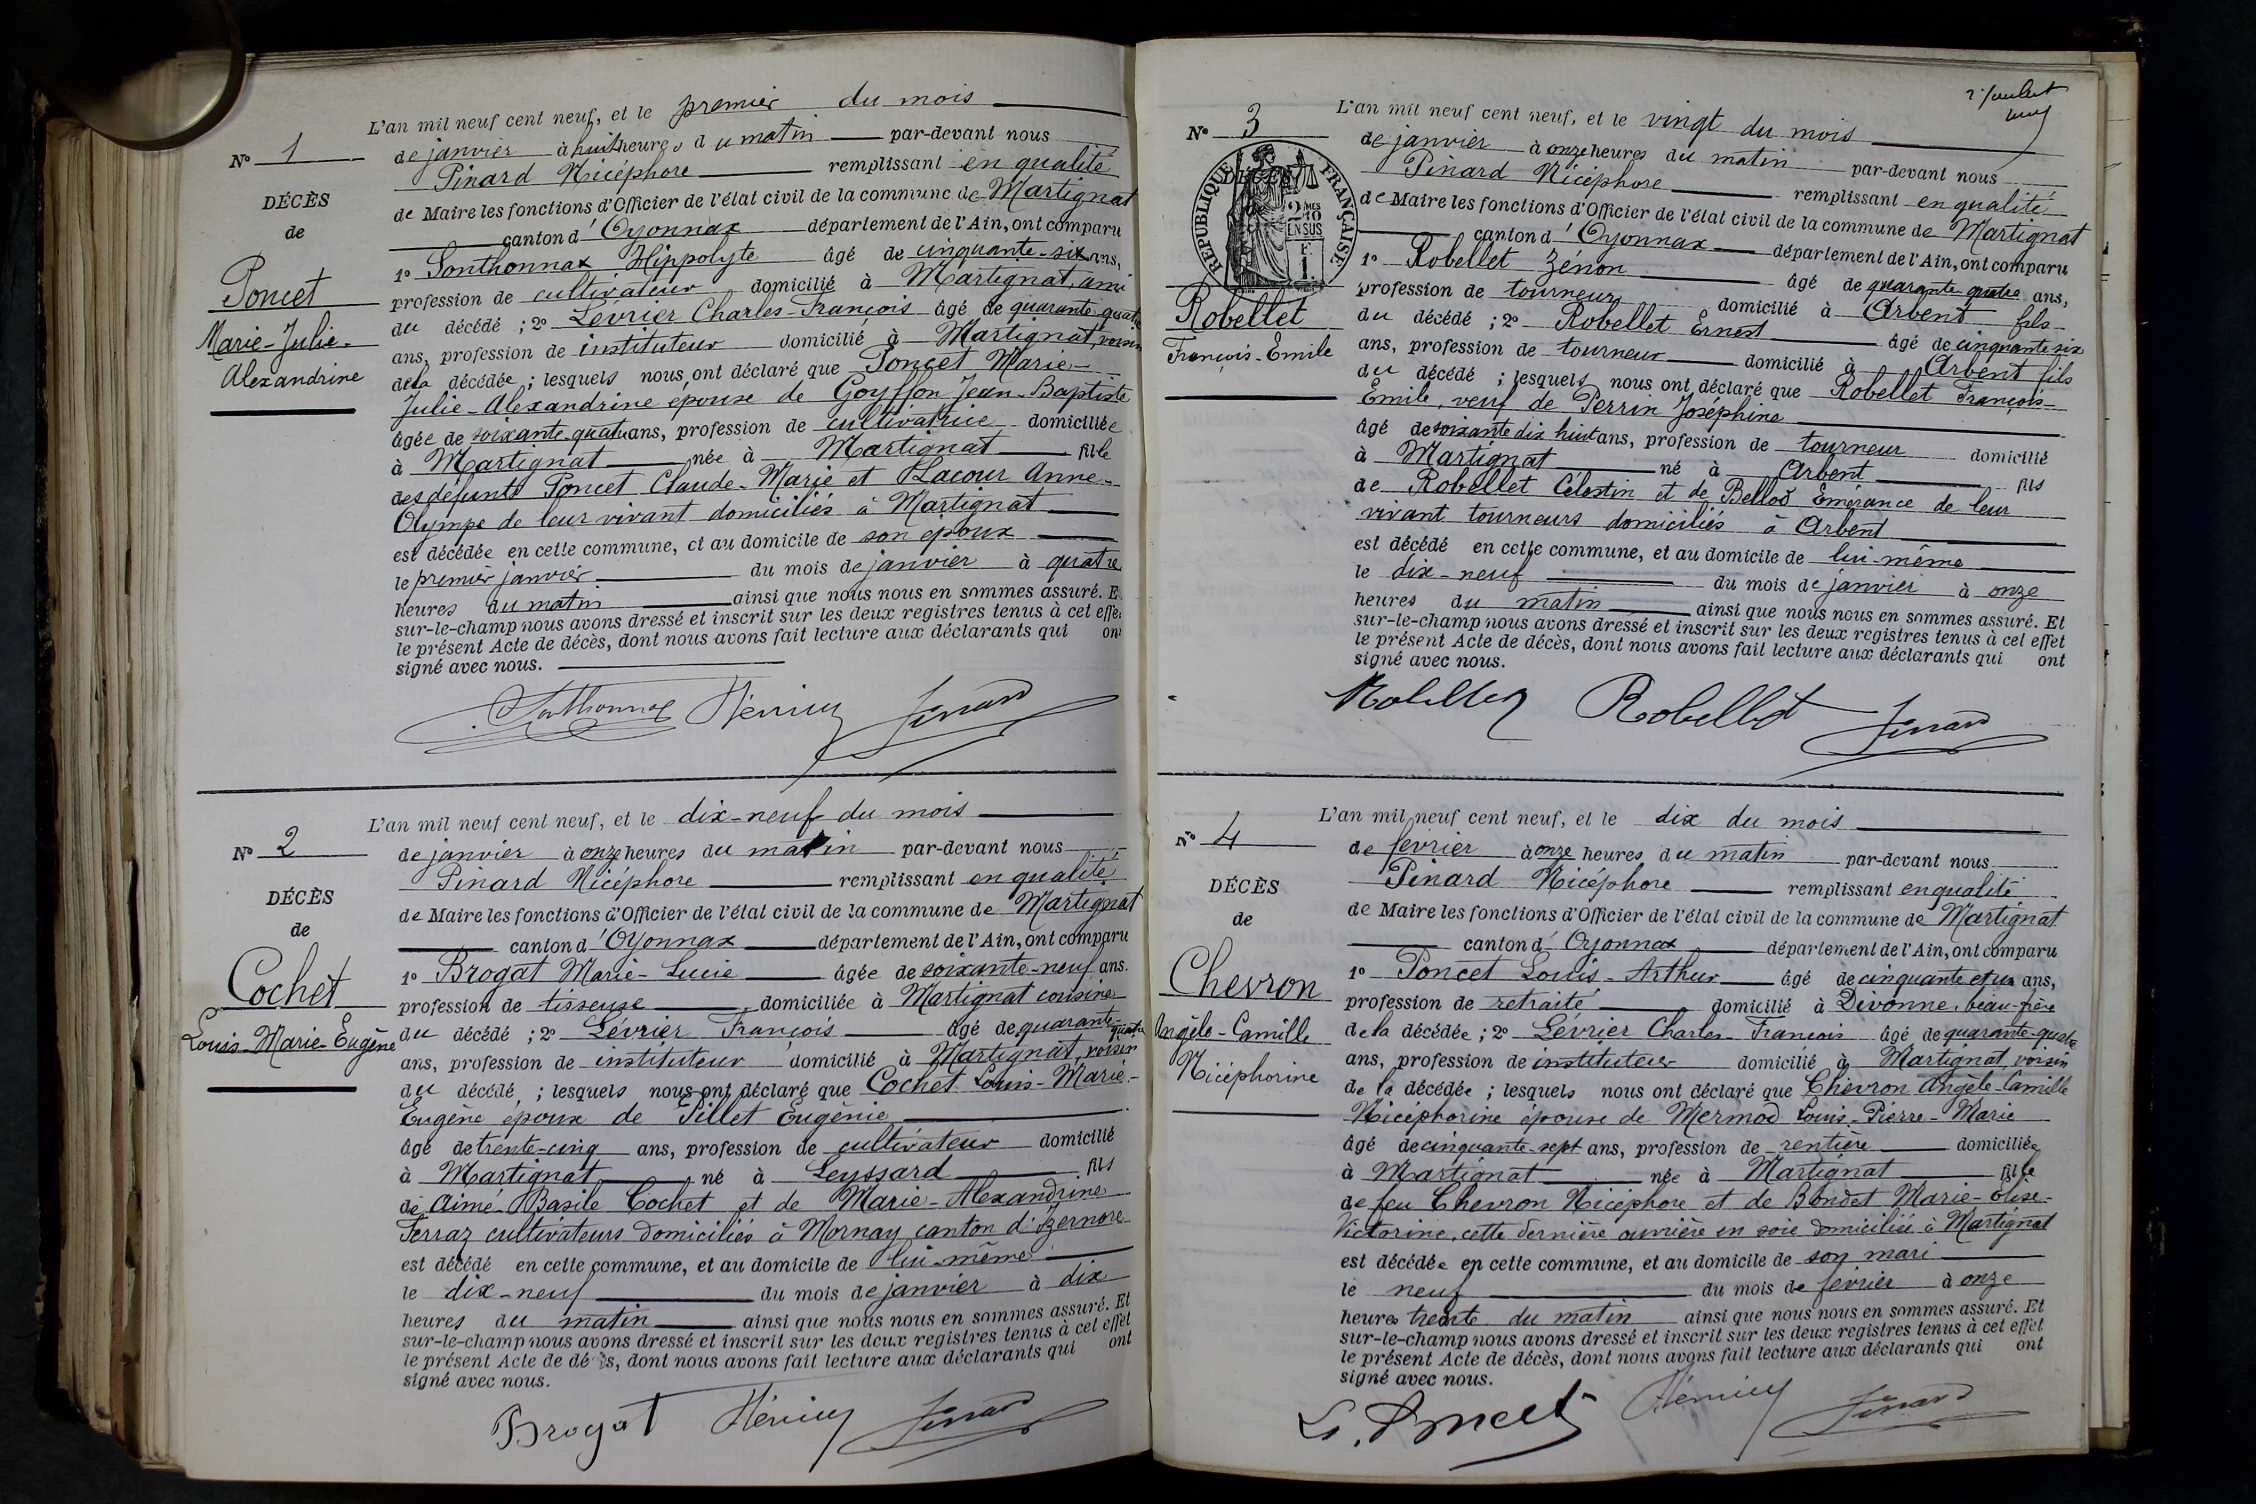 L'an mil neuf cent neuf, et le premier du mois
N° 1
de janvier à huit heures du matin par-devant nous
Pinard Nicéphore remplissant en qualité
DÉCÈS
de Maire les fonctions d'Officier de l'état civil de la commune de Martignat
de
canton d'Oyonnax département de l'Ain, ont comparu
1° Santhonnax Hippolyte âgé de cinquante-six ans,
Poncet
profession de cultivateur domicilié à Martignat, ami
du décédé ; 2° Lévrier Charles-François âgé de quarante-quatre
Marie-Julie-
ans, profession de instituteur domicilié à Martignat, voisin
Alexandrine
de la décédée ; lesquels nous ont déclaré que Poncet Marie-
Julie-Alexandrine épouse de Goyffon Jean-Baptiste
âgée de soixante-quatre ans, profession de cultivatrice domiciliée
à Martignat née à Martignat fille
des défunts Poncet Claude-Marie et Lacour Anne-
Olympe de leur vivant domiciliés à Martignat
est décédée en cette commune, et au domicile de son époux
le premier janvier du mois de janvier à quatre
heures du matin ainsi que nous nous en sommes assuré. E
sur-le-champ nous avons dressé et inscrit sur les deux registres tenus à cet effe
le présent Acte de décès, dont nous avons fait lecture aux déclarants qui ont
signé avec nous.
Santhonnax Lévrier Pinard
L'an mil neuf cent neuf, et le dix-neuf du mois
N° 2
de janvier à onze heures du matin par-devant nous
Pinard Nicéphore remplissant en qualité
DÉCÈS
de Maire les fonctions d'Officier de l'état civil de la commune de Martignat
de
canton d'Oyonnax département de l'Ain, ont comparu
1° Brogat Marie-Lucie âgée de soixante-neuf ans.
Cochet
profession de tisseuse domiciliée à Martignat cousine
Louis-Marie-Eugène
du décédé ; 2° Lévrier François âgé de quarante-quatre
ans, profession de instituteur domicilié à Martignat, voisin
du décédé ; lesquels nous ont déclaré que Cochet Louis-Marie-
Eugène époux de Pillet Eugénie
âgé de trente-cinq ans, profession de cultivateur domicilié
à Martignat né à Leyssard fils
de Aimé-Basile Cochet et de Marie-Alexandrine
Ferraz cultivateurs domiciliés à Mornay canton d'Izernore
est décédé en cette commune, et au domicile de lui-même
le dix-neuf du mois de janvier à dix
heures du matin ainsi que nous nous en sommes assuré. Et
sur-le-champ nous avons dressé et inscrit sur les deux registres tenus à cet effet
le présent Acte de décès, dont nous avons fait lecture aux déclarants qui ont
signé avec nous.
Brogat Lévrier Pinard
L'an mil neuf cent neuf, et le vingt du mois
N° 3
de janvier à onze heures du matin par-devant nous
Pinard Nicéphore remplissant en qualité
DÉCÈS
RÉPUBLIQUE FRANÇAISE
2/10
EN SUS
de Maire les fonctions d'Officier de l'état civil de la commune de Martignat
canton d'Oyonnax département de l'Ain, ont comparu
1° Robellet Zénon âgé de quarante quatre ans,
Robellet
profession de tourneur domicilié à Arbent fils
François-Emile
du décédé ; 2° Robellet Ernest âgé de cinquante six
ans, profession de tourneur domicilié à Arbent fils
du décédé ; lesquels nous ont déclaré que Robellet François-
Emile, veuf de Perrin Joséphine
âgé de soixante dix huit ans, profession de tourneur domicilié
à Martignat né à Arbent fils
de Robellet Célestin et de Bellod Emérance de leur
vivant tourneurs domiciliés à Arbent
est décédé en cette commune, et au domicile de lui-même
le dix-neuf du mois de janvier à onze
heures du matin ainsi que nous nous en sommes assuré. Et
sur-le-champ nous avons dressé et inscrit sur les deux registres tenus à cet effet
le présent Acte de décès, dont nous avons fait lecture aux déclarants qui ont
signé avec nous.
Robellet Robellet Pinard
L'an mil neuf cent neuf, et le dix du mois
N° 4
de février à onze heures du matin par-devant nous
Pinard Nicéphore remplissant en qualité
DÉCÈS
de Maire les fonctions d'Officier de l'état civil de la commune de Martignat
de
canton d'Oyonnax département de l'Ain, ont comparu
1° Poncet Louis-Arthur âgé de cinquante et un ans,
Chevron
profession de retraité domicilié à Divonne, beau-frère
Angèle-Camille
de la décédée ; 2° Lévrier Charles-François âgé de quarante-quatre
ans, profession de instituteur domicilié à Martignat, voisin
Nicéphorine
de la décédée ; lesquels nous ont déclaré que Chevron Angèle-Camille
Nicéphorine épouse de Mermod Louis-Pierre-Marie
âgé de cinquante-sept ans, profession de rentière domiciliée
à Martignat née à Martignat fille
de feu Chevron Nicéphore et de Bondet Marie-Olise-
Victorine, cette dernière ouvrière en soie domiciliée à Martignat
est décédée en cette commune, et au domicile de son mari
le neuf du mois de février à onze
heures trente du matin ainsi que nous nous en sommes assuré. Et
sur-le-champ nous avons dressé et inscrit sur les deux registres tenus à cet effet
le présent Acte de décès, dont nous avons fait lecture aux déclarants qui ont
signé avec nous.
L. Poncet Lévrier Pinard